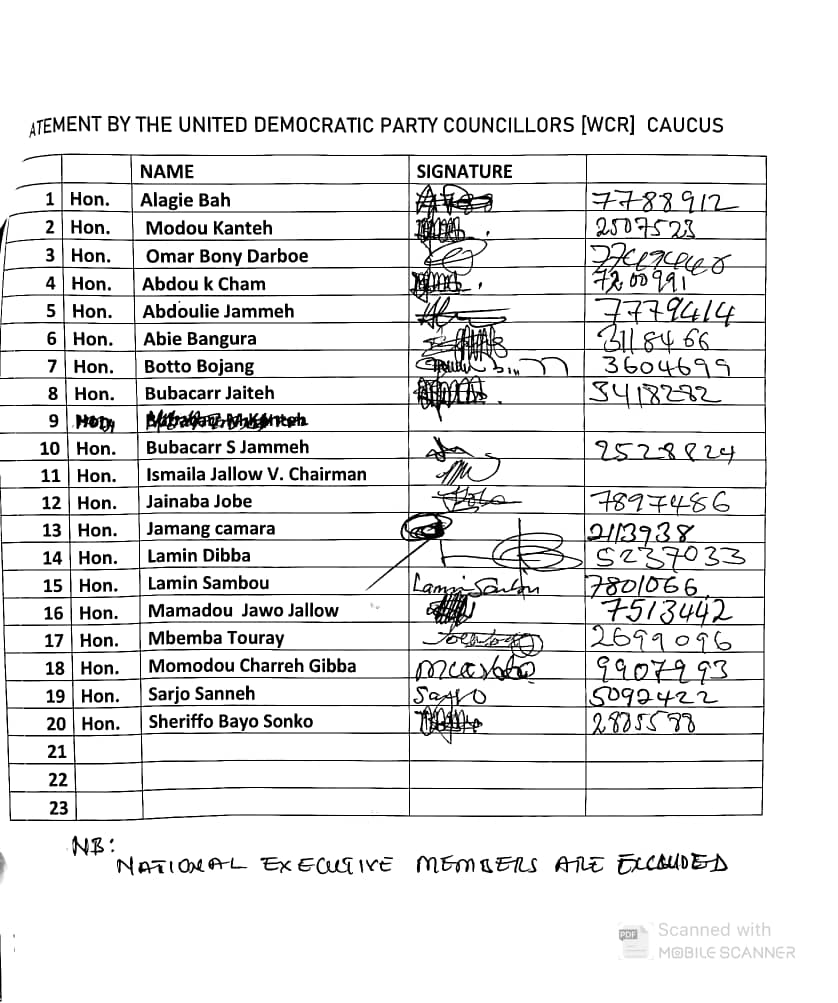 ATEMENT BY THE UNITED DEMOCRATIC PARTY COUNCILLORS [WCR] CAUCUS
NAME SIGNATURE
1 Hon. Alagie Bah 7788912
2 Hon. Modou Kanteh 2507523
3 Hon. Omar Bony Darboe
4 Hon. Abdou k Cham 7200991
5 Hon. Abdoulie Jammeh 7779414
6 Hon. Abie Bangura 3118466
7 Hon. Botto Bojang 3604699
8 Hon. Bubacarr Jaiteh 3418282
9
10 Hon. Bubacarr S Jammeh 2528824
11 Hon. Ismaila Jallow V. Chairman
12 Hon. Jainaba Jobe 7897486
13 Hon. Jamang camara 2113938
14 Hon. Lamin Dibba 5237033
15 Hon. Lamin Sambou 7801066
16 Hon. Mamadou Jawo Jallow 7513442
17 Hon. Mbemba Touray 2699096
18 Hon. Momodou Charreh Gibba 9907993
19 Hon. Sarjo Sanneh 5092422
20 Hon. Sheriffo Bayo Sonko
21
22
23
NB:
NATIONAL EXECUTIVE MEMBERS ARE EXCLUDED
PDF Scanned with
MOBILE SCANNER